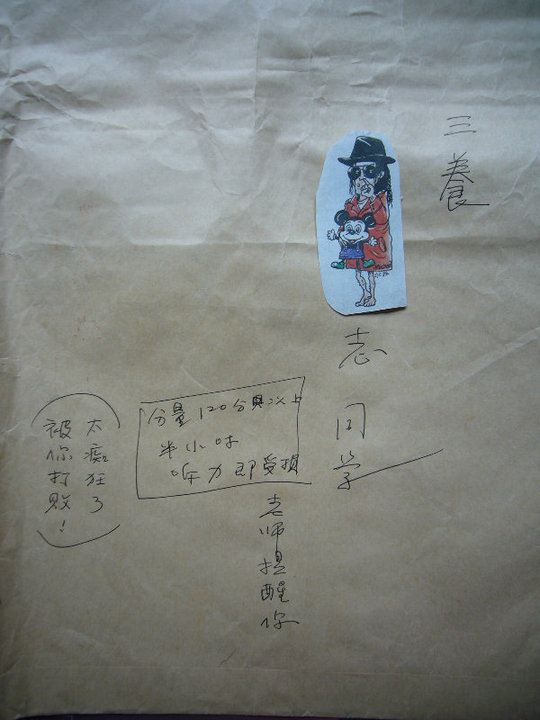 三養
志同学
分量120分貝以上
半小时
听力即受損
老师提醒你
太痴狂了
被你打敗!